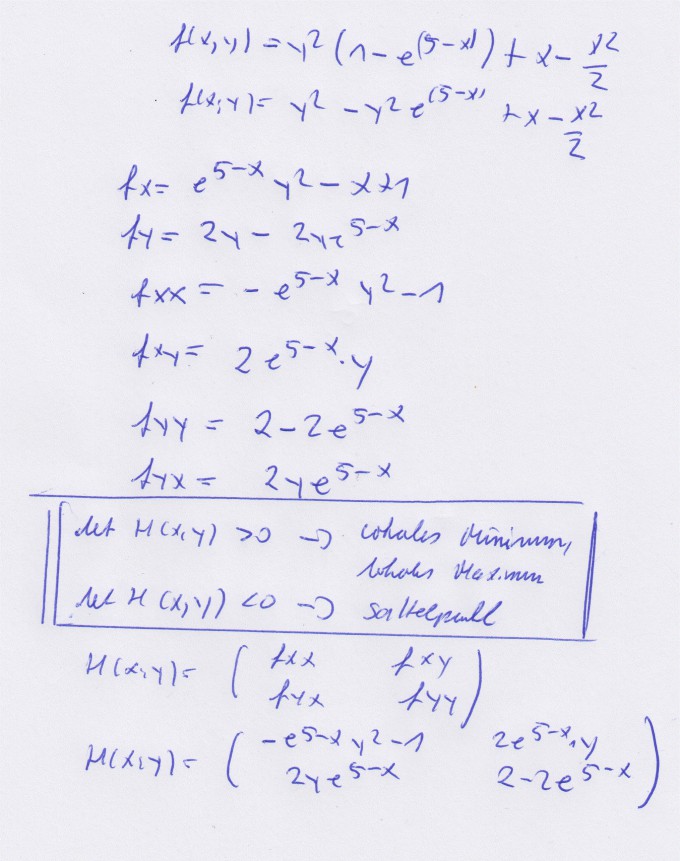 f(x,y) = y² (1 - e^(5-x)) + x - x²/2
f(x,y) = y² - y² e^(5-x) + x - x²/2
fx = e^5-x y² - x + 1
fy = 2y - 2y e^5-x
fxx = - e^5-x y² - 1
fxy = 2 e^5-x · y
fyy = 2 - 2e^5-x
fyx = 2y e^5-x
det H(x,y) > 0 → lokales Minimum,
lokales Maximum
det H(x,y) < 0 → Sattelpunkt
H(x,y) = ( fxx fxy
fyx fyy )
H(x,y) = ( -e^5-x y² - 1 2e^5-x · y
2y e^5-x 2 - 2e^5-x )